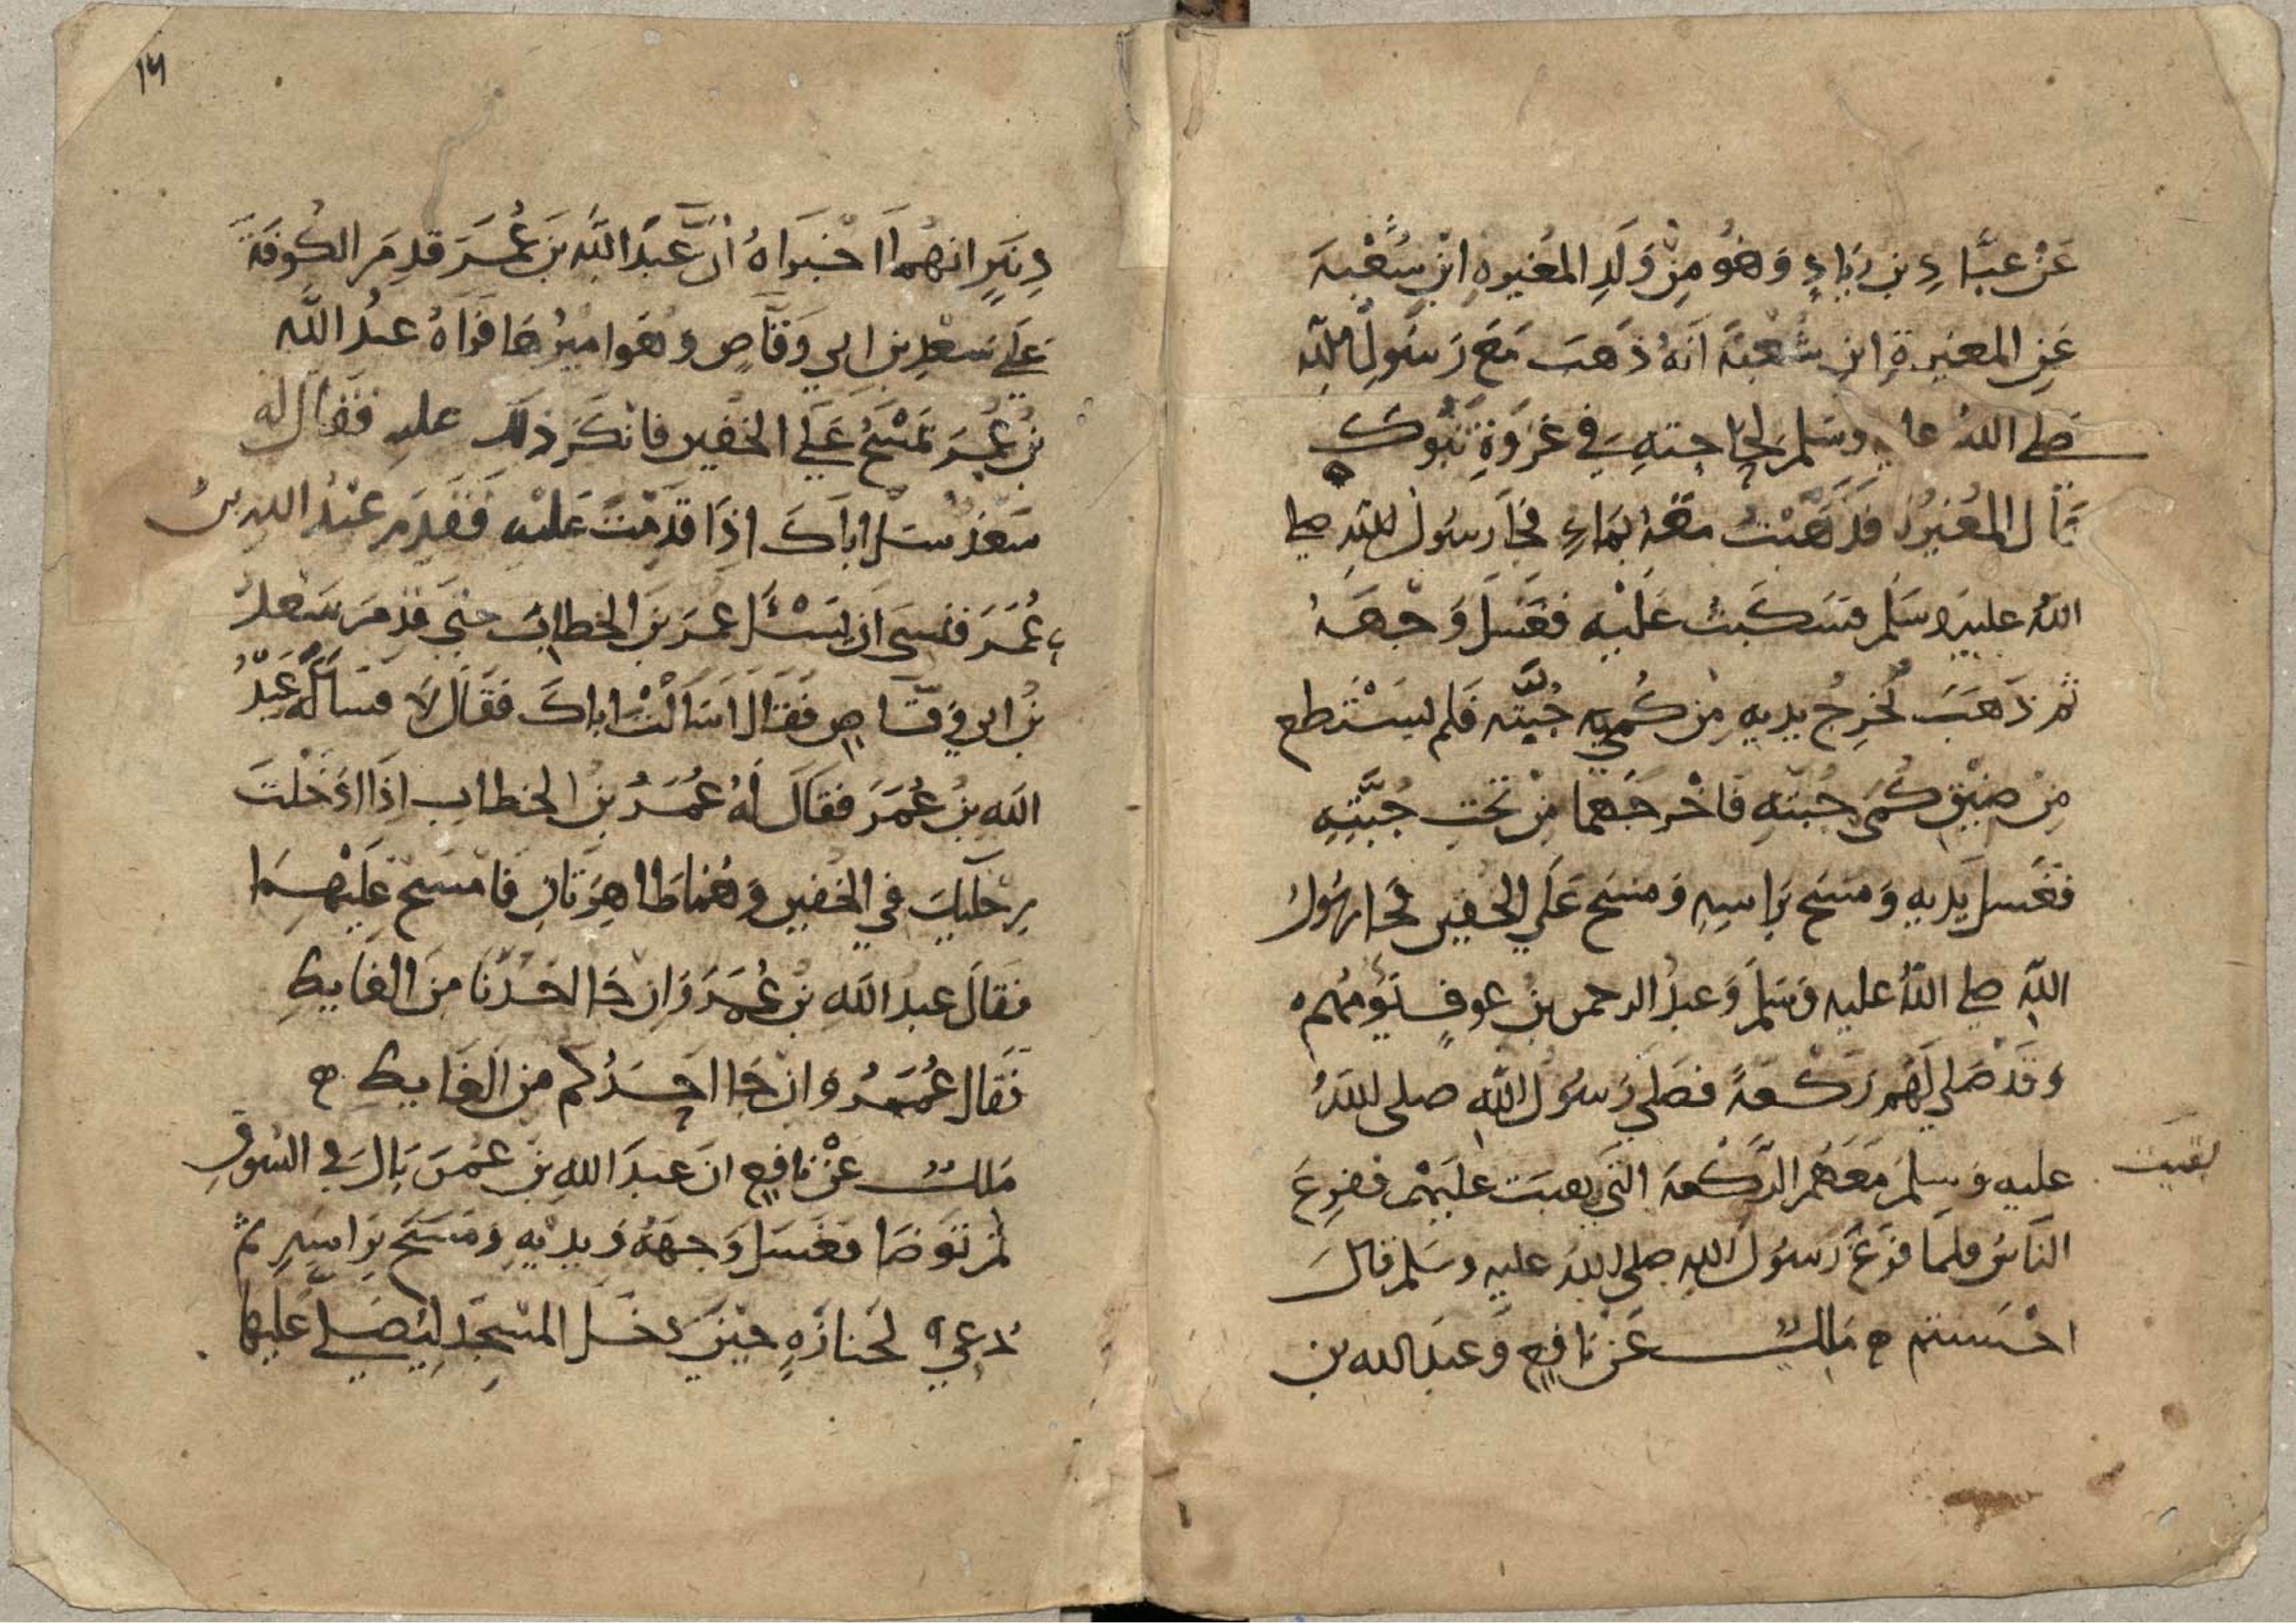 عَنْ عبَّادِ بن زيَادٍ وَهُو مِنْ وَلَدِ المُغيرهِ ابْنِ شُعْبَهَ
عَنِ المغيرةِ ابنِ شُعْبَةَ انَهُ ذَهَبَ مَعَ رَسُولِ اللّه
صَلي اللهُ عليه وسَلم لحِاجتهِ في غزْوَةِ تبُوك
قَال المُغيرُه فَذَهَبْتُ معَهُ بمَاءٍ فجَا رسُول الله صلي
اللهُ عليه وسَلم فسَكَبتُ عَلَيْه فغَسَل وَجْهَهُ
ثم ذَهَبَ يُخرِجُ يديهِ مِن كُمي جُبَّته فَلم يسَتطع
مِنْ ضيْقِ كُمَّي جُبّتهِ فَاخْرجَهما مِنْ تحَتِ جُبَّتِهِ
فغَسل يَديهِ وَمسَح بَراسِهِ وَمسَح عَلَي الخفين فجَا رسُول
اللّه صلي اللّهُ عليه وَسَلمَ وَعبدُ الرحمن بنُ عوفٍ يَؤمهُم ه
وَقَدْ صَلي لَهُم رَكْعَةً فصَلي رَسُولُ اللّه صلى اللهُ
عليه وَسلمَ مَعَهُم الرَّكْعَه التي بقيت عَليَهْم ففزِعَ
بَقيَت
النَاسُ فلَمَا فَرَغَ رَسُول الله صلى اللهُ عليه وسَلم قالَ
احْسَنتم ه مَالكٌ عَنْ نَافعٍ وَعَبد الله بن
١٦
دِينَارٍ انهُما اخْبَرَاهُ أنَّ عَبْدَ اللَّه بنَ عُمَرَ قدِمَ الكُوفَةَ
عَلَي سَعْدِ بن ابي وَقَّاصٍ وهَو اميرُهَا فَرَاهُ عبدُ اللَّه
بنُ عُمَرَ يَمْسَحُ عَلَي الخفين فانْكَرَ ذلكَ عليهِ فقَال له
سَعْدٌ سَل ابَاكَ اذَا قَدِمْتَ عَليْهِ فَقَدِمَ عَبْدُ اللهِ بنُ
عُمَرَ فنسيَ اَن يَسْئَل عمَرَ بنَ الخطابِ حتيَ قدِمَ سَعدُ
بنُ ابي وقَّاصٍ فَقَالَ اَسَاَلْتَ اباكَ فقَالَ لاَ فسَاَلَه عَبْدُ
اللهِ بنُ عُمَرَ فقَالَ لَهُ عُمَرُ بنُ الخطابِ اِذَا ادْخَلْتَ
رِجْليكَ في الخفين وَهُمَا طَاهِرَتانِ فَامْسَح عَليْهمَا
فقَالَ عبدُ اللهِ بنُ عُمَرَ وَاِن جَا احَدُنَا مِنَ الغَايطِ
فقَال عُمَرُ وَانْ جَا احَدُكم مِنَ الغَايطِ ه
مَالكٌ عَنْ نافعٍ انَ عبدَ اللهِ بنَ عمُرَ بَالَ في السُوقِ
ثم تَوَضَا فغَسَل وَجهَهُ وَيدَيْهِ وَمَسَح بَراسِهِ ثم
دُعِيَ لجَنازَةٍ حِيْنَ دخَل المَسْجدَ ليُصَلي عَليهَا